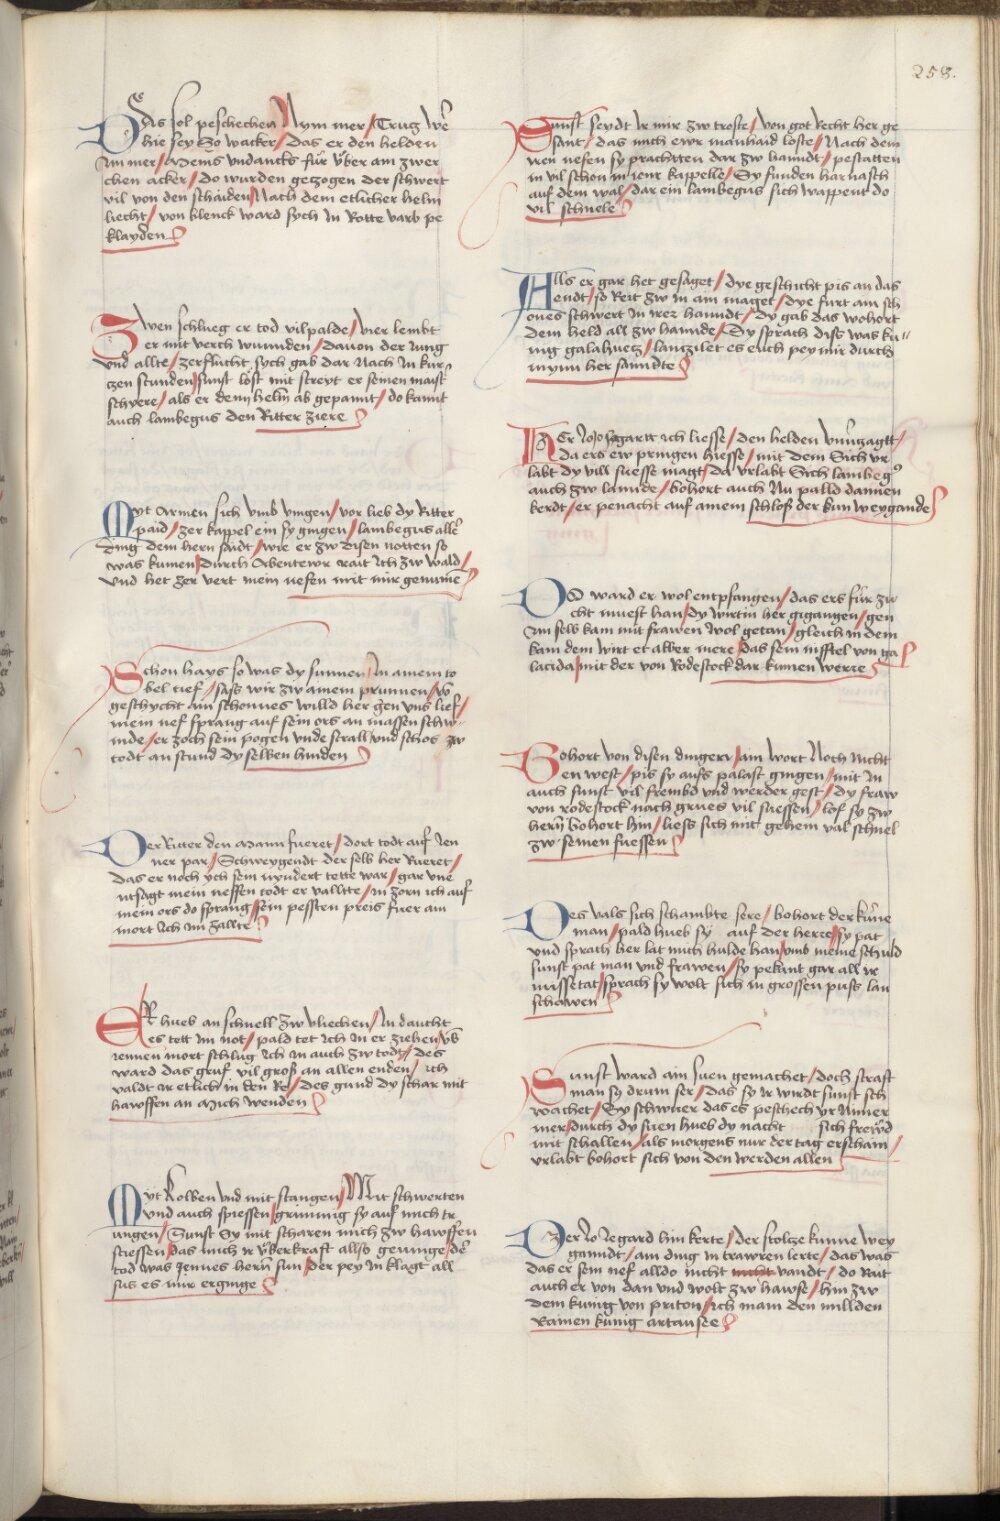 258.
Das sol peschechen Nym mer / Trug wer
hie sey so wacker / Das er den helden
Nn mer / Mems vndancks für über am zwer
chen acker / do wurden getzogen der schwert
vil von den schaiden / Nach dem etlicher helm
hecht / von klenck ward sych in Rotte varb pe
klayden
Zwen schlueg er tod vil palde / vier lembt
er mit verch wunnden / dauon der Jung
vnd allte / zerflücht sych gab dar Nach In kur
czen stunden / sunst lost mit streyt er seinen maist
schwere / als er dem helm ab gepannt / do kannt
auch lambegus den Ritter ziere
Myt Armen sich vmb viengen / vor lieb dy Ritter
paid / zer kappel ein sy gingen / lambegus alle
ding dem hern saidt / wie er zw disen notten so
was kumen / durch Abentewr rait ich zw wald /
vnd het zer vert mein nefen mit mir genume
Schon hays so was dy sunnen / In ainem to
bel tief / sass wir zw ainem prunnen / vo
geschycht ain schonnes willd her gen vns lief /
mein nef sprang auf sein ors an massen schw
inde / er zoch sein pogen vnde strall vnd schos zw
todt an stund dy selben hinden
Der Ritter den Mann fueret / dort todt auf Jen
ner par / Schweygendt der selb her Rueret /
das er noch ych sein nyndert tette war / gar vne
ntsagt mein neffen todt er vallte / in zorn ich auf
mein ors do sprang / sein pessten preis fuer am
mort ich im zallte
Er hueb an schnell zw vliechen / In daucht
es tett im not / pald tet ich in er ziehen / vb
iennen mort schlug ich in auch zw todt / des
ward das gruf vil groß an allen enden / ich
valdt ir etlich in den Re / des gund dy schar mit
hawffen an Mich wenden
Myt kolben vnd mit stangen / Mit schwerten
vnd auch spiessen / grimmig sy auf mich tr
ungen / Sunst Sy mit scharen mich zw hawffen
stiessen / das mich ir überkraft allso geuinge / de
tod was Jennes hern sun / der pey in klagt all
sus es mir erginge
Sunst seydt ir mir zw troste / von got Recht her ge
sant / das mich ewr manhaid loste / Nach dem
iren nefen sy prachtten dar zw hanndt / pestatten
in vil schon in iener kappelle / Sy funden harnasch
auf dem wal / dar ein lambegus sich wappent do
vil schnele
Alls er gar het gesaget / dye geschicht pis an das
endt / so Reit zw in ain maget / dye furt ain sch
ones schwert In irez hanndt / Dy gab das wohort
dem held all zw hannde / Sy sprach diss was ku
nig galahuetz / lantzilet es euch pey mir durch
mynn her sanndte
Er  ich liesse / den helden vnuerzagtt /
da ers ew pringen hiesse / mit dem Sich vr
labt dy vill suesse magt / da vrlabt Sich lambeg
auch zw lannde / bohort auch Nu palld dannen
kerdt / er penacht auf ainem schloß der kun weygande
Do ward er wol entpfangen / das ers für zw
cht muest han / dy wirtin her gigangen / gen
im selb kam mit frawen wol getan / gleich in dem
kam dem wirt et alber mere / das sein nifftel von ga
lacida / mit der von Rodestock dar kumen were
Bohort von disen dingen / ain wort Noch Nicht
en west / pis sy aufs palast gingen / mit In
auch sunst vil frembd vnd werder gest / dy fraw
von rodestock nach grues vil suessen / lof sy zw
hern bohort hin / liess sich mit gehem val schnel
zw seinen fuessen
Des vals sich schambte sere / bohort der kune
man / pald hueb sy auf der here / sy pat
vnd sprach her lat mich hulde han / vmb meine schuld
sunst pat man vnd frawen / sy pekant gar all ir
missetat / sprach sy wolt sich in grossen puss lan
schawen
Sunst ward ain suen gemachet / doch straft
man sy drum ser / das sy ir wirdt sunst sch
wachet / Sy schwuer das es peschech yr Nimer
mer / durch dy suen hueb dy nacht sich frewd
mit schallen / als morgens nur der tag erschain /
vrlabt bohort sich von den werden allen
Zer  hin kerte / der stoltze kunne wey
ganndt / ain ding in trawren lerte / das was
das er sein nef alldo nicht vandt / do Rait
auch er von dan vnd wolt zw hawse / hin zw
dem kunig von priton / ich main den millden
Rainen kunig artausee